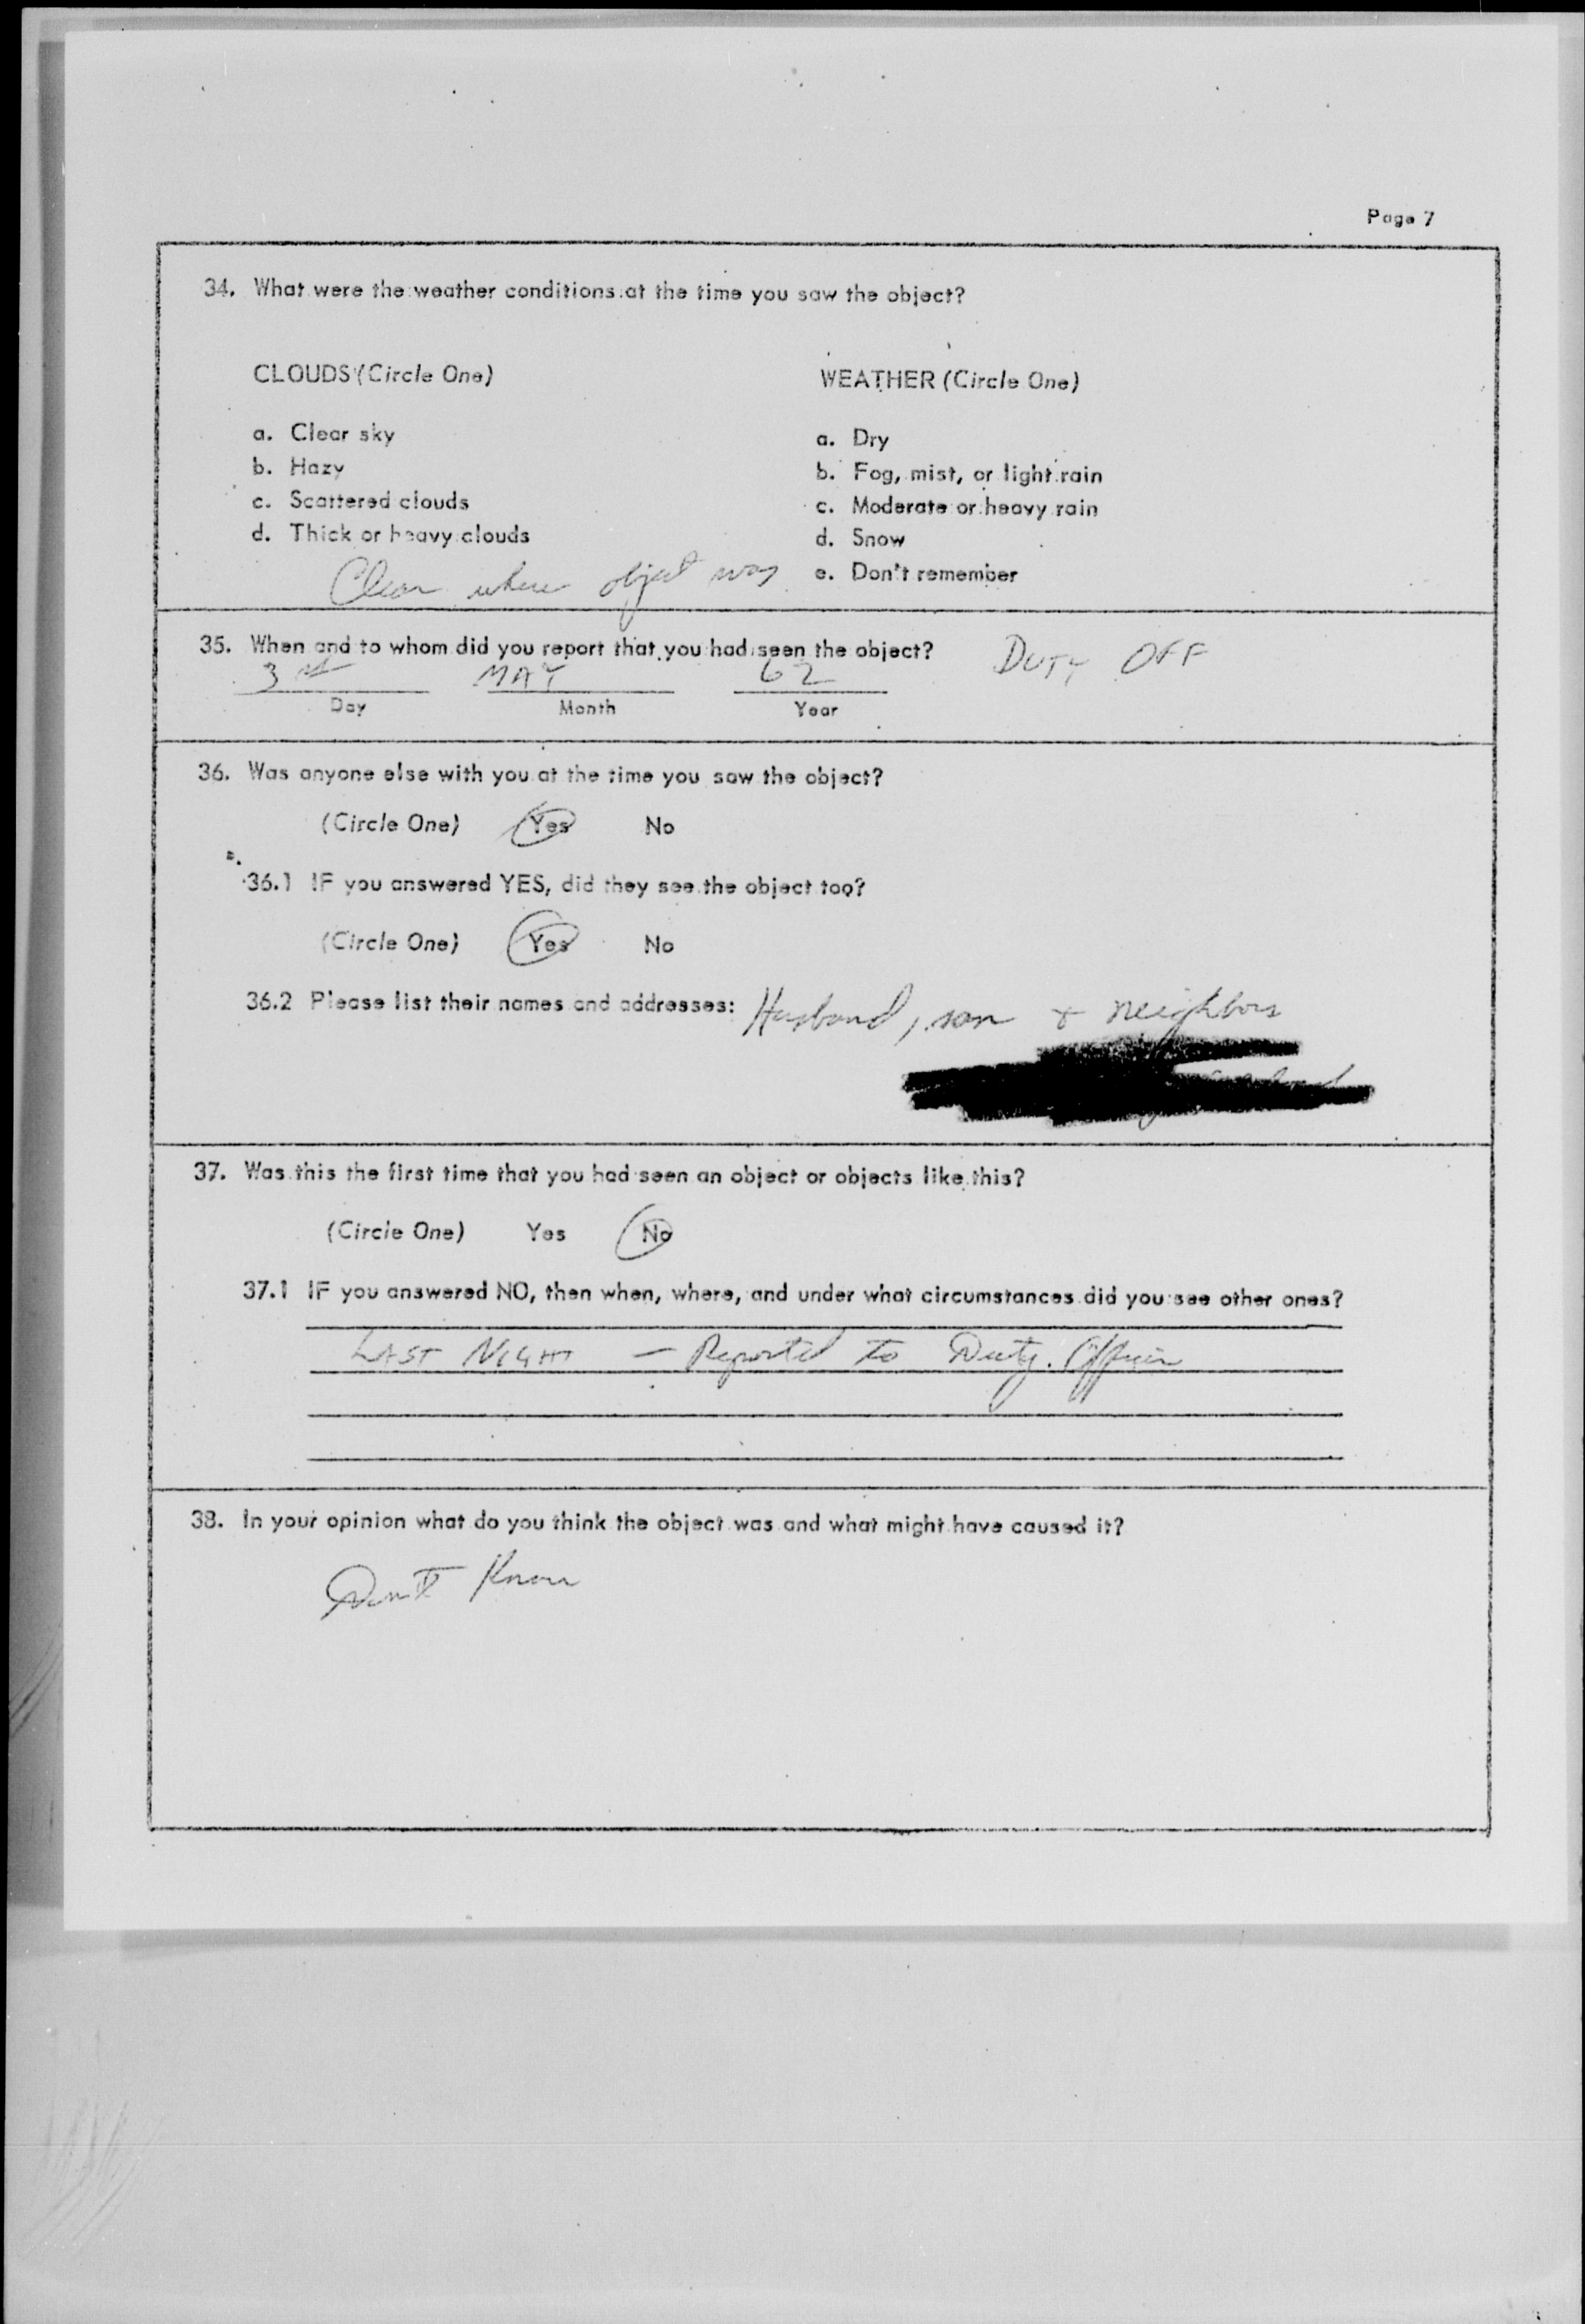 Page 7
34. What were the weather conditions at the time you saw the object?
CLOUDS (Circle One)
a. Clear sky
b. Hazy
c. Scattered clouds
d. Thick or heavy clouds
Clear where object was
WEATHER (Circle One)
a. Dry
b. Fog, mist, or light rain
c. Moderate or heavy rain
d. Snow
e. Don't remember
35. When and to whom did you report that you had seen the object? DUTY OFF
3 MAY 62
Day Month Year
36. Was anyone else with you at the time you saw the object?
(Circle One) Yes No
36.1 IF you answered YES, did they see the object too?
(Circle One) Yes No
36.2 Please list their names and addresses: Husband, son + neighbors
37. Was this the first time that you had seen an object or objects like this?
(Circle One) Yes No
37.1 IF you answered NO, then when, where, and under what circumstances did you see other ones?
LAST NIGHT — Reported to Duty Officer
38. In your opinion what do you think the object was and what might have caused it?
Don't Know